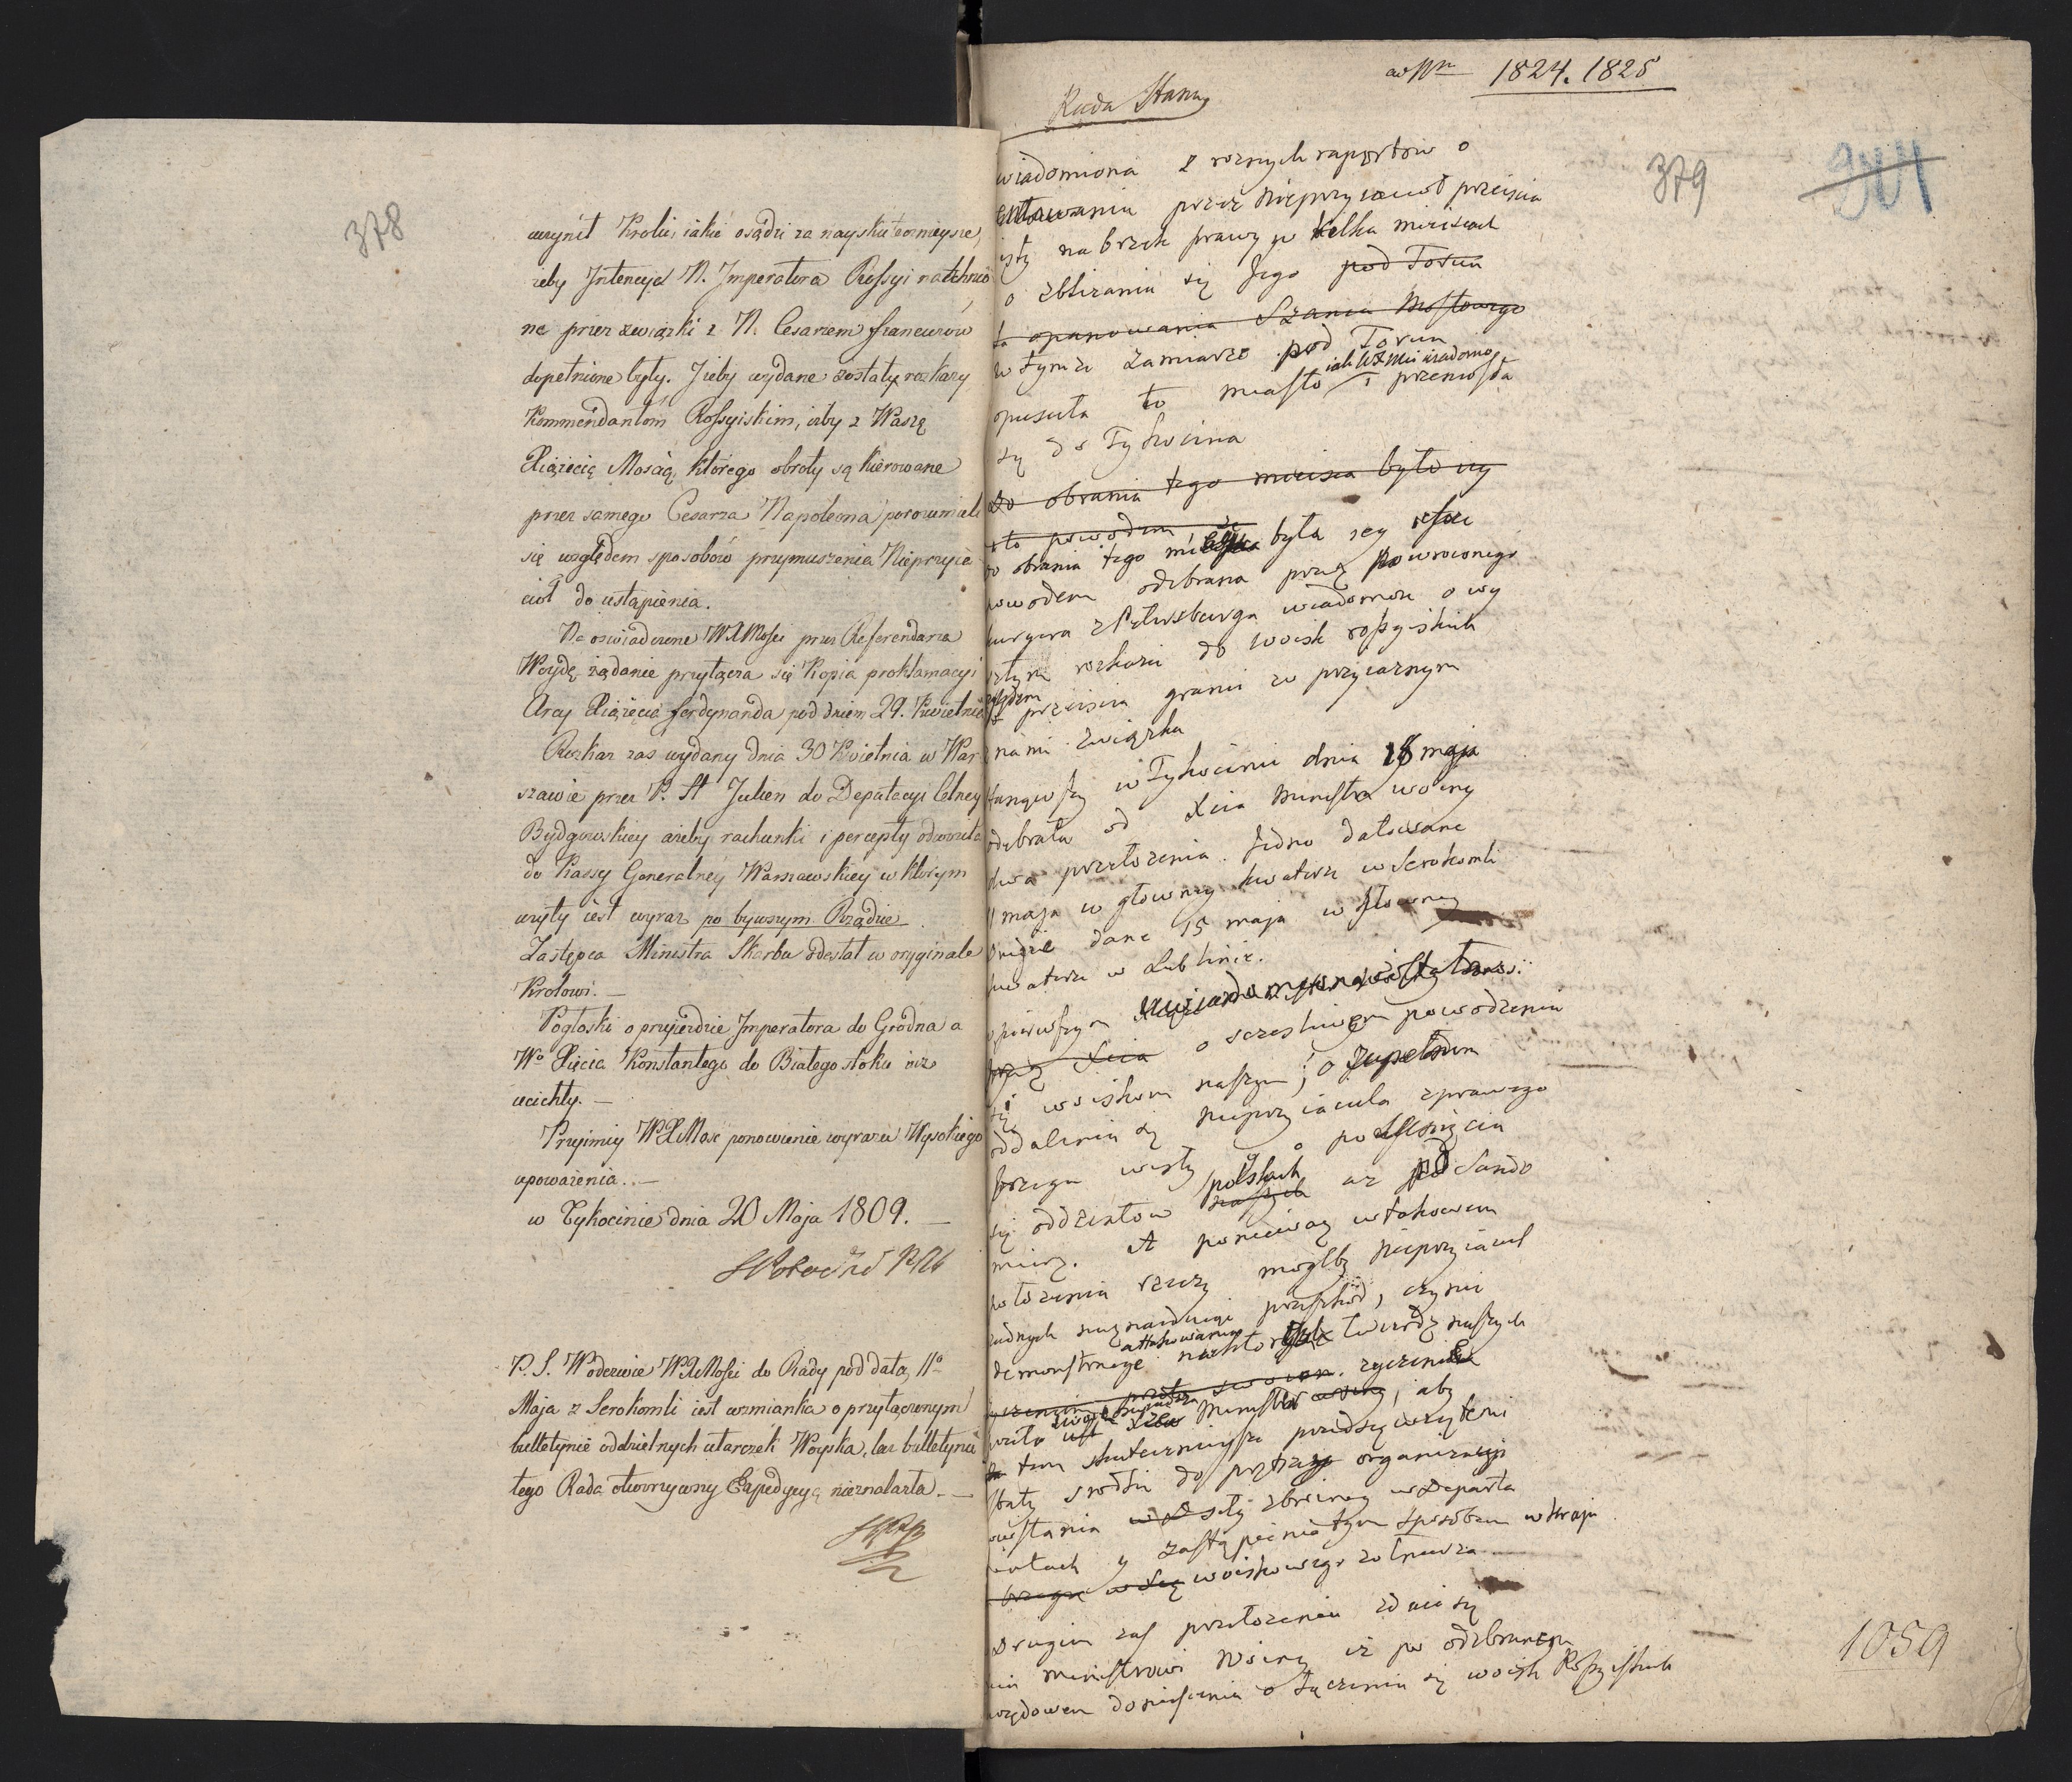 378
uczynił Krolu, iakié osądzi za nayskutecznieysze,
żeby Intencye N. Imperatora Rossyi natchnio
ne przez związki z N. Cesarzem francuzów
dopełnione były. Iżeby wydane zostały rozkazy
Kommendantom Rossyiskim, ażby z Waszą
Xiążęcią Mością, którego obroty są kierowane
przez samego Cesarza Napoleona porozumieli
się względem sposobów przymuszenia Nieprzyia
ciół do ustąpienia.
Na oswiadczone WXMości przez Referendarza
Woydę żądanie przyłącza się Kopia proklamacyi
Arcy Xiążęcia ferdynanda pod dniem 29. Kwietnia
Rozkaz zas wydany dnia 30 Kwietnia w War
szawie przez P. St Julien do Deputacyi Celney
Bydgowskiey ażeby rachunki i percepty odwoziła
do Kassy Generalney Warszawskiey w którym
użyty iest wyraz po bywszym Rządzie
Zastępca Ministra Skarbu odesłał w oryginale
Krolowi. —
Pogłoski o przyieździe Imperatora do Grodna a
Wo Xięcia Konstantego do Białego stoku iuż
ucichły. —
Przyimiy WXMość ponowienie wyrazu Wysokiego
upoważenia. —
w Tykocinie dnia 20 Maja 1809. —
P. S. W odezwie WXMości do Rady pod datą 11o
Maja z Serokomli iest wzmianka o przyłączonym
bulletynie oddzielnych utarczek Woyska, lecz bulletynu
tego Rada otworzywszy Expedycyą nieznalazła. —
1824. 1825
Rada Stanu
379
904
wiadomiona z roznych raportow o
przez Nieprzyiaciół przeiscia
isły na brzek prawy w kilku mieiscach
o zbliżaniu się Jego pod Toruń
opanowania Szańca Mostowego
w tymże zamiarze pod Toruń
opuściła to miasto iak WXMci wiadomo i przeniosła
się do Tykocina
Do obrania tego mieisca było iey
powodem
do obrania tego była iey
powodem odebrana przez powroconego
kuryera z Petersburga wiadomość o wy
rozkazu do woisk rossyiskich
przeiscia granic w przyiaznym
z nami związku
w Tykocinie dnia 18 maja
odebrała od Xcia Ministra woiny
dwa przełożenia. Jedno datowane
11 maja w głowney kwaterze w Serokomli
Drugie dane 15 maja w głowney
kwaterze w Lublinie.
pierwszym uwiadomiona została
przez Xcia o szczęśliwem powodzeniu
się woiskom naszym; o zupełnem
oddaleniu się nieprzyiaciela z prawego
brzegu wisły o posunięciu
się oddziałow polskich naszych aż pod Sando
mierz. A ponieważ w takowem
położeniu rzeczy mogłby nieprzyiaciel
żadnych nieznayduiąc przeszkod, czynić
demonstracye attakowania niektorych twierdz naszych
życzenie
Ministra woiny, aby
tem skutecznieysze przedsięwzięte
były srodki do prętszey organizacyi
powstania siły zbroiney w Departa
mentach y zastąpienia tym sposobem w kraju
woiskowego żołnierza
Drugim zas przełożeniu zdaie się
Ministrowi Woiny iż po odebranem
urzędowem doniesieniu o łączeniu się woisk Rossyiskich
1059